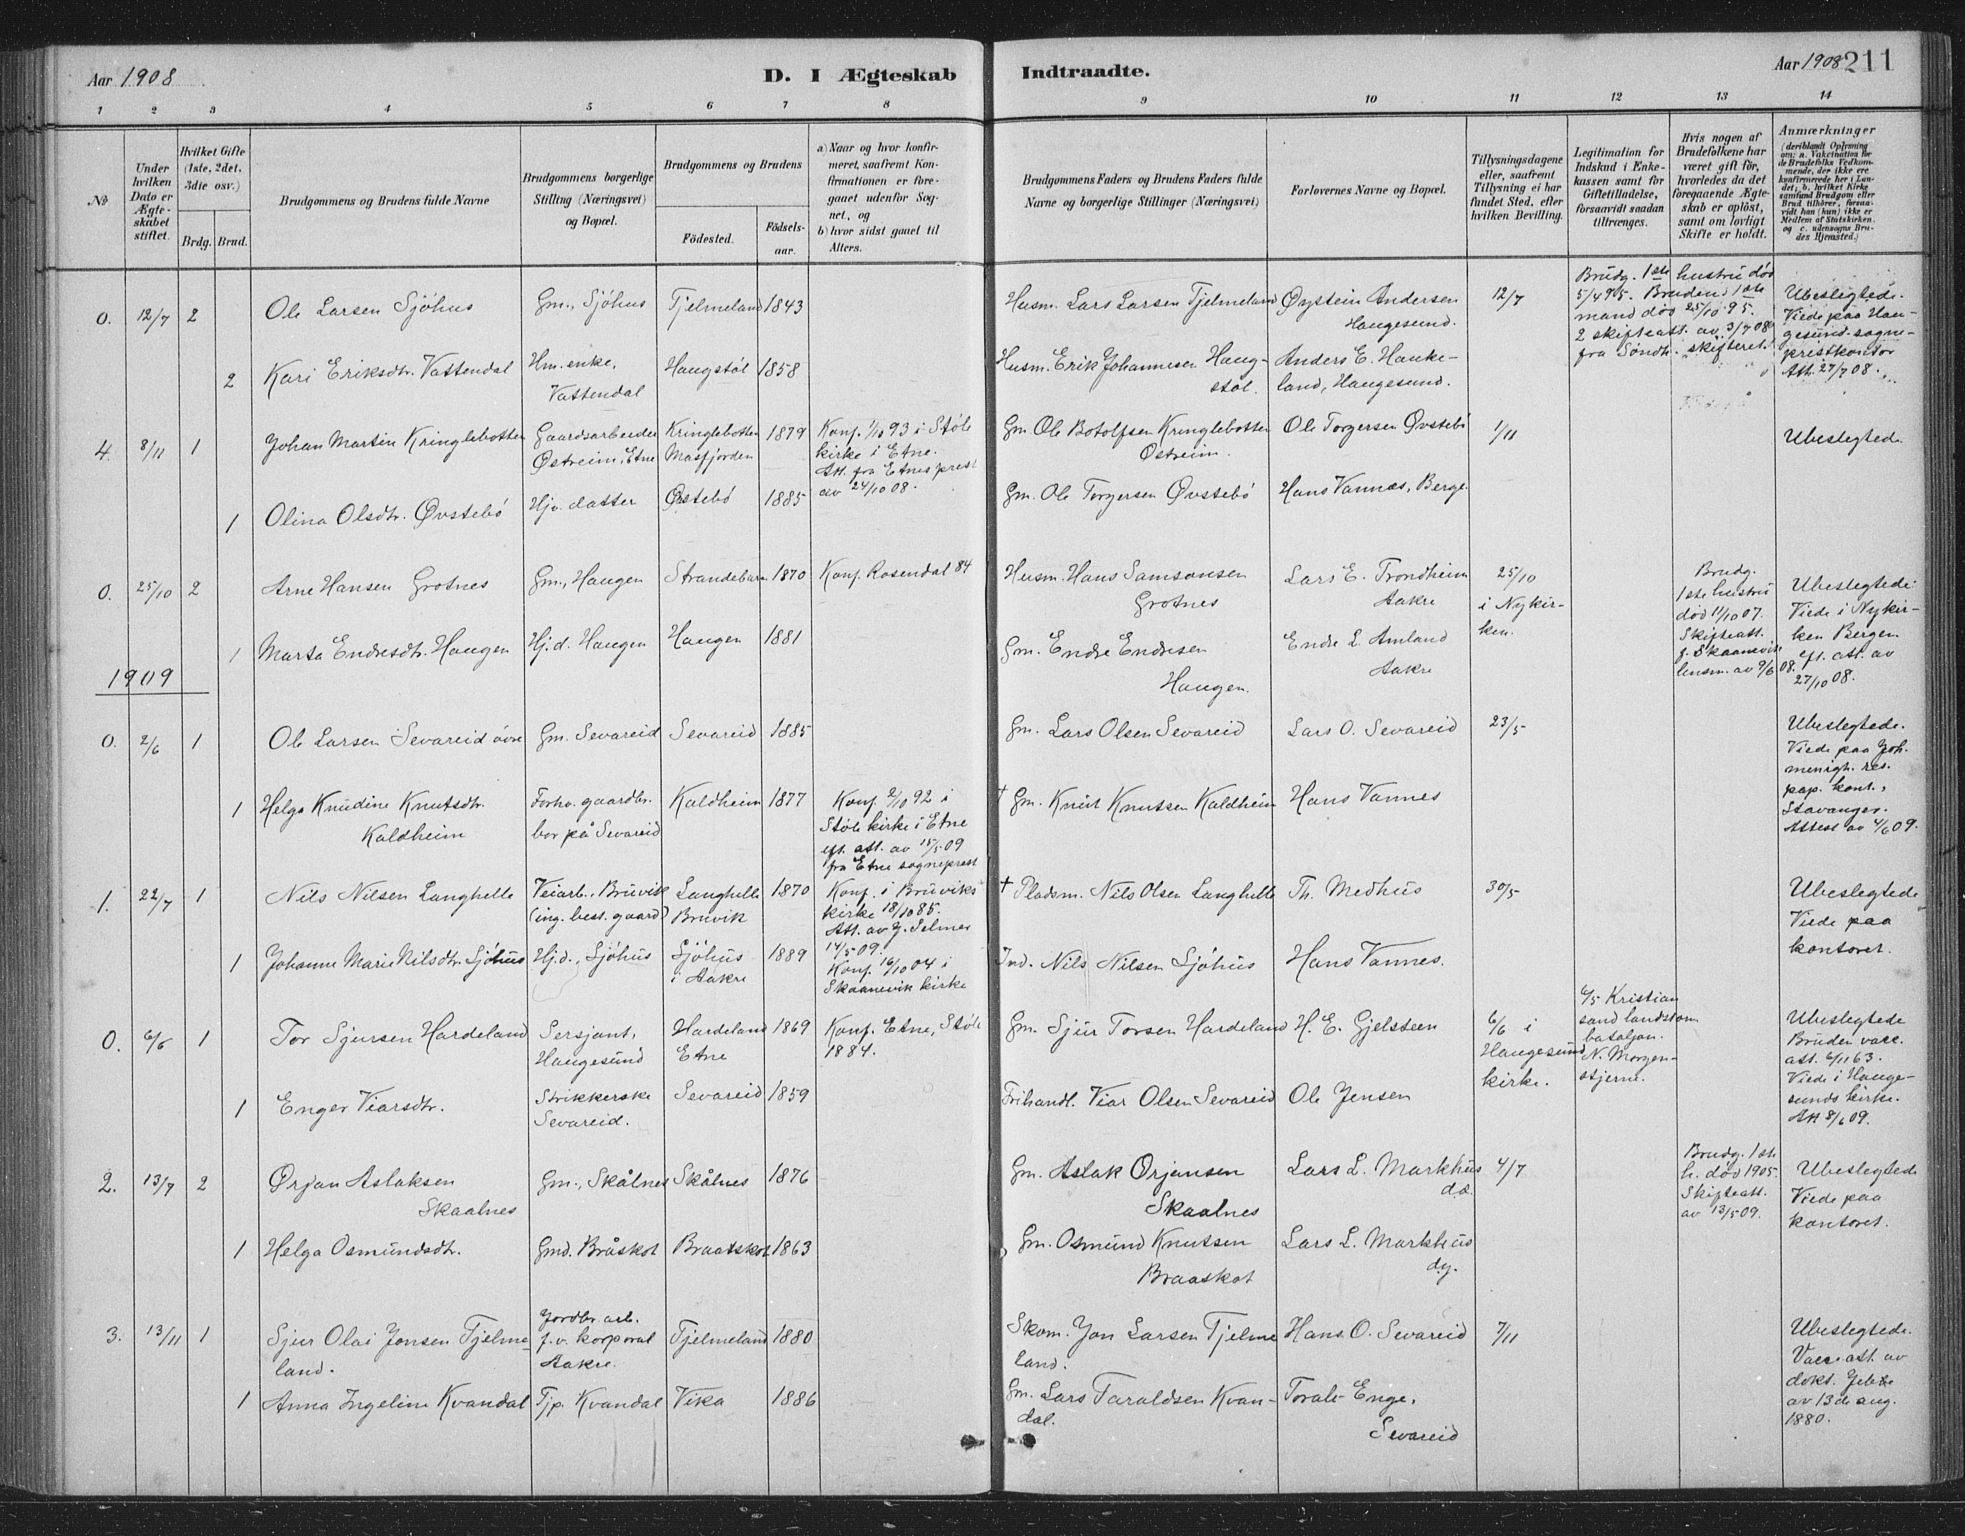 Aar 1908
D. I Ægteskab
Indtraadte.
Aar 1908
211
1 2 3 4 5 6 7 8 9 10 11 12 13 14
No
Under hvilken Dato er Ægteskabet stiftet.
Hvilket Gifte (1ste, 2det, 3die osv.)
Brdg. Brud.
Brudgommens og Brudens fulde Navne
Brudgommens borgerlige Stilling (Næringsvei) og Bopæl.
Brudgommens og Brudens
Fødested.
Fødselsaar.
a) Naar og hvor konfirmeret, saafremt Konfirmationen er foregaaet udenfor Sognet, og
b) hvor sidst gaaet til Alters.
Brudgommens Faders og Brudens Faders fulde Navne og borgerlige Stillinger (Næringsvei)
Forlovernes Navne og Bopæl.
Tillysningsdagene eller, saafremt Tillysning ei har fundet Sted, efter hvilken Bevilling.
Legitimation for Indskud i Enkekassen samt for Giftetilladelse, forsaavidt saadan tiltrænges.
Hvis nogen af Brudefolkene har været gift før, hvorledes da det foregaaende Ægteskab er opløst, samt om lovligt Skifte er holdt.
Anmærkninger (deriblandt Oplysning om: a. Vakcination for de Brudefolks Vedkommende, der ikke ere konfirmerede her i Landet; b. hvilket Kirkesamfund Brudgom eller Brud tilhører, forsaavidt han (hun) ikke er Medlem af Statskirken, og c. udensogns Brudes Hjemsted.)
0. 12/7 2 Ole Larsen Sjöhus Gm., Sjöhus Tjelmeland 1843 Husm. Lars Larsen Tjelmeland Øystein Andersen Haugesund. 12/7
Brudg. 1ste hustru död 5/4 95. Brudens 1ste mand död 25/10 95. 2 skifteatt. av 3/7 08 fra Söndh. skifteret.
Ubeslegtede. Viede paa Haugesund sogneprestkontor Att. 27/7 08.
2 Kari Eriksdtr. Vattendal Hm. enke, Vattendal Haugstöl 1858 Husm. Erik Johannesen Haugstöl. Anders E. Haukeland, Haugesund.
4. 8/11 1 Johan Martin Kringlebotten Gaardsarbeider Östreim, Etne Kringlebotten Masfjorden 1879 Konf. 1/10 93 i Stöle kirke i Etne. Att. fra Etnes prest av 24/10 08. Gm. Ole Botolfsen Kringlebotten Östreim. Ole Torgersen Övstebö 1/11 Ubeslegtede.
1 Olina Olsdtr. Øvstebö Hjv. datter Østebö 1885 Gm. Ole Torgersen Øvstebö Hans Vannes, Berge.
0. 25/10 2 Arne Hansen Grotnes Gm., Haugen Strandebarm 1870 Konf. Rosendal 84 Husm. Hans Samsonsen Grotnes Lars E. Trondheim Aakre 25/10 i Nykirken.
Brudg. 1ste hustru död 11/10 07. Skifteatt. f. Skaanevik lensm. av 9/6 08.
Ubeslegtede. Viede i Nykirken Bergen eft. att. av 27/10 08.
1 Marta Endresdtr. Haugen Hj. d. Haugen Haugen 1881 Gm. Endre Endresen Haugen. Endre L. Amland Aakre
1909
0. 2/6 1 Ole Larsen Sevareid övre Gm. Sevareid Sevareid 1885 Gm. Lars Olsen Sevareid Lars O. Sevareid 23/5
Ubeslegtede. Viede paa Joh. menigh. res. kap. kont., Stavanger. Attest av 4/6 09.
1 Helga Knudine Knutsdtr. Kaldheim Forhv. gaardbr. bor på Sevareid Kaldheim 1877 Konf. 2/10 92 i Stöle kirke i Etne eft. att. av 15/5 09 fra Etne sogneprest † Gm. Knut Knutsen Kaldheim Hans Vannes
1. 22/7 1 Nils Nilsen Langhelle Veiarb., Bruvik (ing. best. gaard) Langhelle Bruvik 1870 Konf. i Bruviks kirke 18/10 85. Att. av J. Selmer 14/5 09. † Pladsm. Nils Olsen Langhelle Th. Medhus 30/5 Ubeslegtede Viede paa kontoret.
1 Johanne Marie Nilsdtr. Sjöhus Hj. d., Sjöhus Sjöhus i Aakre 1889 Konf. 16/10 04 i Skaanevik kirke Ind. Nils Nilsen Sjöhus Hans Vannes.
0. 6/6 1 Tor Sjursen Hardeland Sersjant, Haugesund Hardeland Etne 1869 Konf. Etne, Stöle 1884. Gm. Sjur Torsen Hardeland H. E. Gjelsteen 6/6 i Haugesund kirke.
6/5 Kristiansand landstorm bataljon. N. Morgenstjerne.
Ubeslegtede Bruden vacc. att. 6/11 63. Viede i Haugesunds kirke. Att 8/6 09.
1 Enger Viarsdtr. Strikkerske Sevareid. Sevareid 1859 Frihandl. Viar Olsen Sevareid Ole Jensen
2. 13/7 2 Ørjan Aslaksen Skaalnes Gm., Skålnes Skålnes 1876 Gm. Aslak Örjansen Skaalnes Lars L. Markhus d.æ. 4/7
Brudg. 1ste h. död 1905. Skifteatt. av 13/5 09.
Ubeslegtede Viede paa kontoret.
1 Helga Osmundsdtr. Gmd. Bråskot Braatskot 1863 Gm. Osmund Knutsen Braaskot Lars L. Markhus d.y.
3. 13/11 1 Sjur Olai Jonsen Tjelmeland. Jordbr. arb. f. v. korporal Aakre. Tjelmeland 1880 Skom. Jon Larsen Tjelmeland. Hans O. Sevareid 7/11
Ubeslegtede. Vacc. att. av dokt. av 13de aug. 1880.
1 Anna Ingeline Kvandal Tjp. Kvandal Vika 1886 Gm. Lars Taraldsen Kvandal. Torale Enge, Sevareid